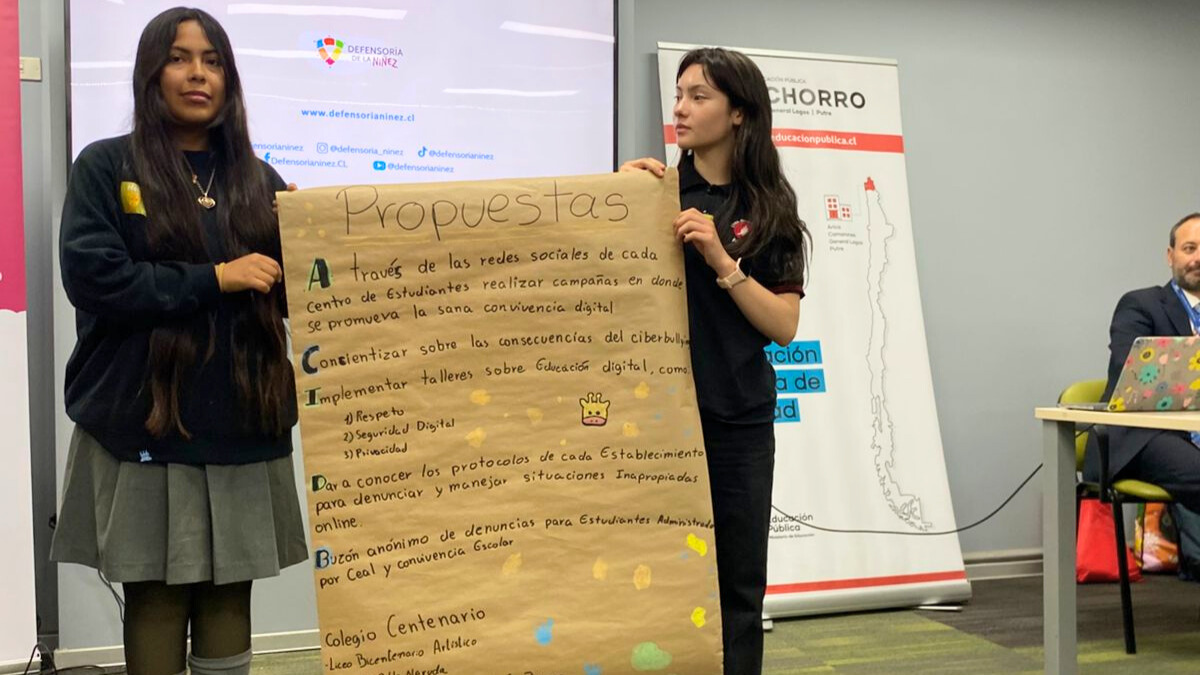 DEFENSORÍA
DE LA NIÑEZ
www.defensorianinez.cl
@defensoria_ninez
@defensorianinez
Defensorianinez.CL
@defensorianinez
Propuestas
A través de las redes sociales de cada
centro de Estudiantes realizar campañas en donde
se promueva la sana convivencia digital
Concientizar sobre las consecuencias del ciberbullying
Implementar talleres sobre Educación digital, como:
1) Respeto
2) Seguridad Digital
3) Privacidad
Dar a conocer los protocolos de cada Establecimiento
para denunciar y manejar situaciones Inapropiadas
online.
Buzón anónimo de denuncias para Estudiantes Administrado
por Ceal y convivencia Escolar
Colegio Centenario
-Liceo Bicentenario Artístico
CHORRO
General Lagos | Putre
educacionpublica.cl
Arica
Camarones
General Lagos
Putre
ación
a de
ad
Educación
Pública